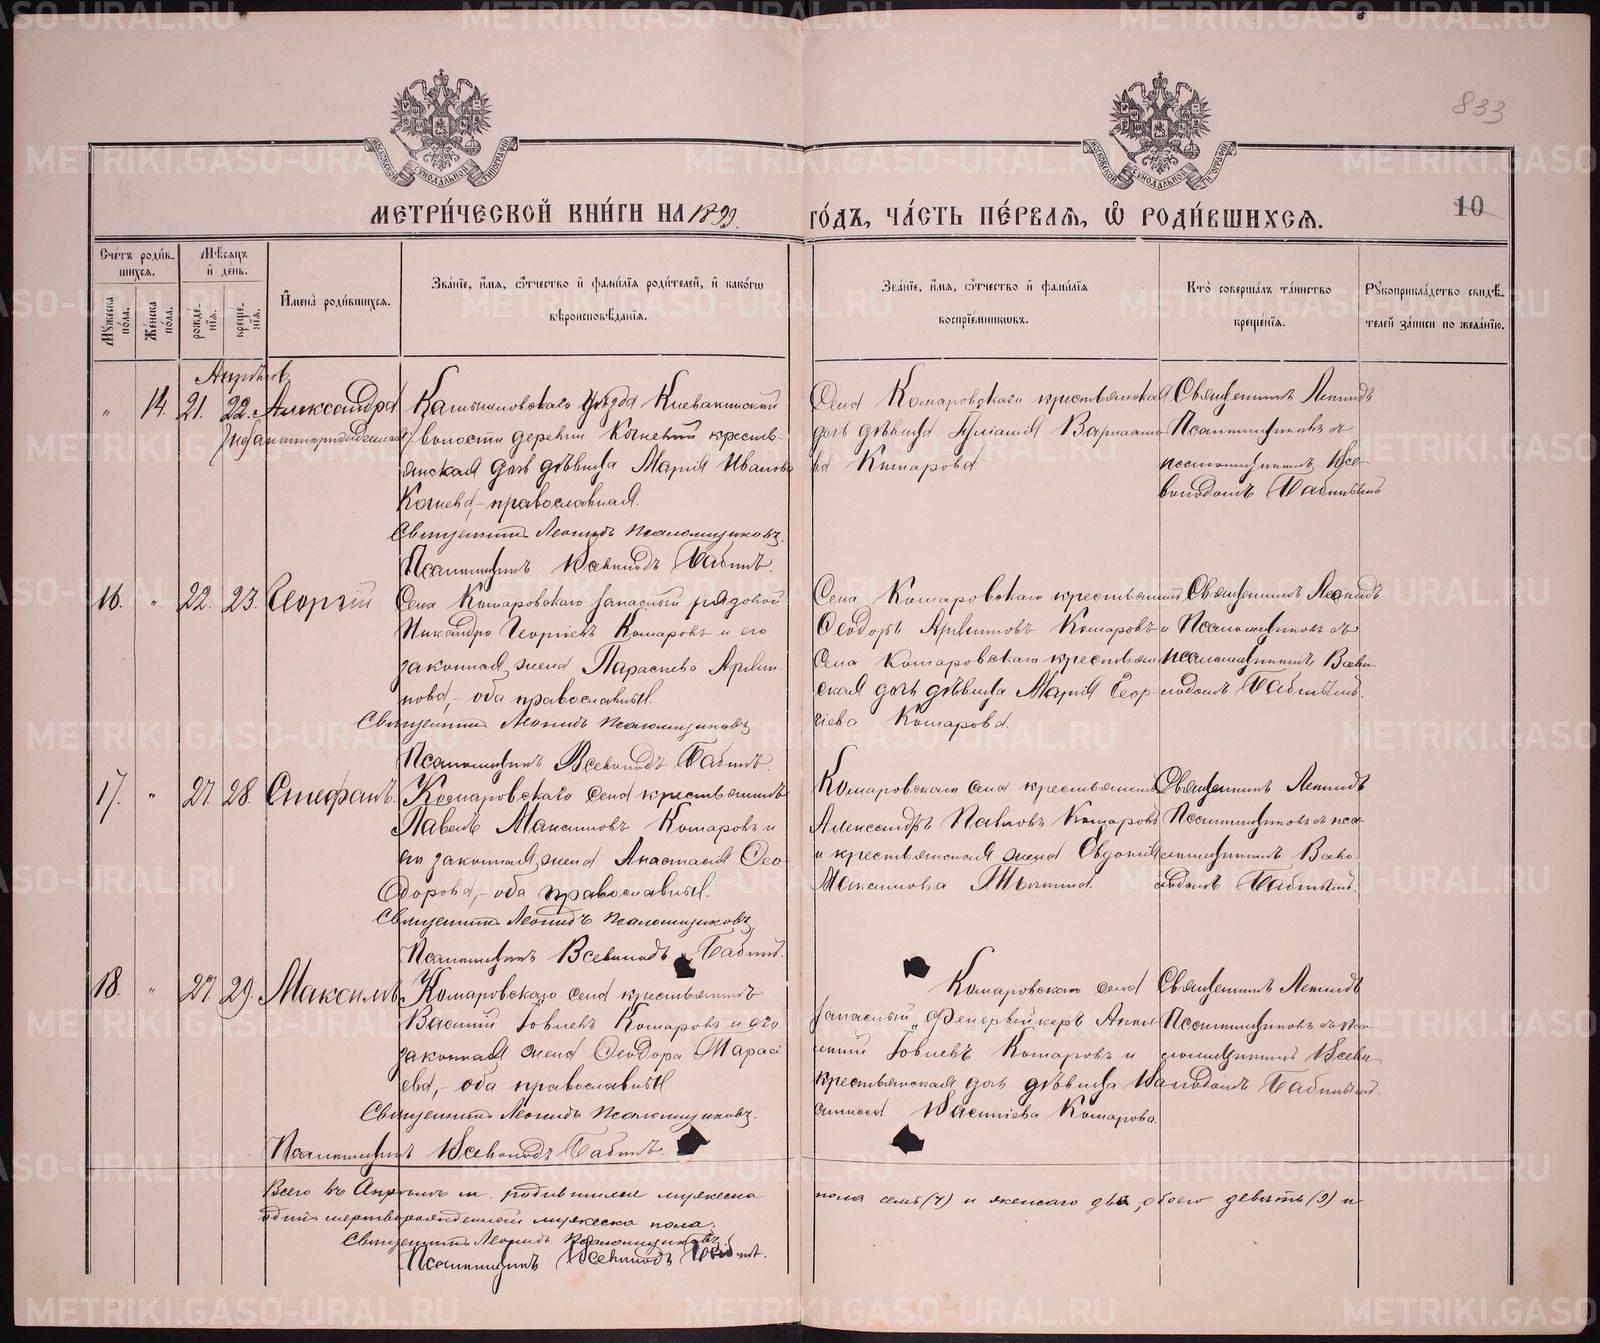 833
МЕТРИ́ЧЕСКОЙ КНИ́ГИ НА 1899 ГО́ДЪ, ЧА́СТЬ ПЕ́РВАЯ, Ѽ РОДИ́ВШИХСЯ.
10
Сче́тъ роди́вшихся.
Му́жеска по́ла.
Же́нска по́ла.
Мѣ́сяцъ и҆ де́нь.
рожде́нїя.
креще́нїя.
И҆мена̀ роди́вшихся.
Зва́нїе, и҆́мя, ѻ҆́тчество и҆ фамѝлїя роди́телей, и҆ како́гѡ
вѣроисповѣ́данїя.
Зва́нїе, и҆́мя, ѻ҆́тчество и҆ фамѝлїя
воспрїе́мниковъ.
Кто̀ соверша́лъ та́инство
креще́нїя.
Рукоприкла́дство свидѣ́-
телей за́писи по жела́нїю.
Апрѣль
" 14. 21. 22. Александра
Камышловскаго уѣзда
волости деревни Кочневой кресть-
янская дочь дѣвица Мария Иванова
Кочнева,- православная.
Священникъ Леонидъ Псаломщиковъ.
Псаломщикъ Всеволодъ Бабинъ.
Села Комаровскаго крестьянская
дочь дѣвица
Комарова.
Священникъ Леонидъ
Псаломщиковъ съ
псаломщикомъ Все-
володомъ Бабинымъ.
16. " 22. 23. Георгій
Села Комаровскаго запасный рядовой
Никандръ Георгіевъ Комаровъ и его
законная жена Параскева
оба православныя.
Священникъ Леонидъ Псаломщиковъ.
Псаломщикъ Всеволодъ Бабинъ.
Села Комаровскаго крестьянинъ
Ѳеодоръ Комаровъ и
села Комаровскаго крестьян-
ская дочь дѣвица Марія Геор-
гіева Комарова.
Священникъ Леонидъ
Псаломщиковъ съ
псаломщикомъ Всево-
лодомъ Бабинымъ.
17. " 27. 28. Стефанъ.
Комаровскаго села крестьянинъ
Павелъ Максимовъ Комаровъ и
его законная жена Анастасія Ѳео-
дорова,- оба православныя.
Священникъ Леонидъ Псаломщиковъ.
Псаломщикъ Всеволодъ Бабинъ.
Комаровскаго села крестьянинъ
Александръ Павловъ Комаровъ
и крестьянская жена Евдокія
Максимова
Священникъ Леонидъ
Псаломщиковъ съ пса-
ломщикомъ Всево-
лодомъ Бабинымъ.
18. " 27. 29. Максимъ
Комаровскаго села крестьянинъ
Василій Іовлевъ Комаровъ и его
законная жена Ѳеодора Тарасі-
ева,- оба православныя
Священникъ Леонидъ Псаломщиковъ.
Псаломщикъ Всеволодъ Бабинъ.
Комаровскаго села
запасный фейерверкеръ
Іовлевъ Комаровъ и
крестьянская дочь дѣвица Ва-
силисса Васильева Комарова.
Священникъ Леонидъ
Псаломщиковъ съ пса-
ломщикомъ Всево-
лодомъ Бабинымъ.
Всего въ Апрѣлѣ м. родившихся мужеска пола семь (7) и женскаго два, обоего девять (9) и
одинъ мертворожденный мужеска пола.
Священникъ Леонидъ Псаломщиковъ
Псаломщикъ Всеволодъ Бабинъ.
METRIKI.GASO-URAL.RU